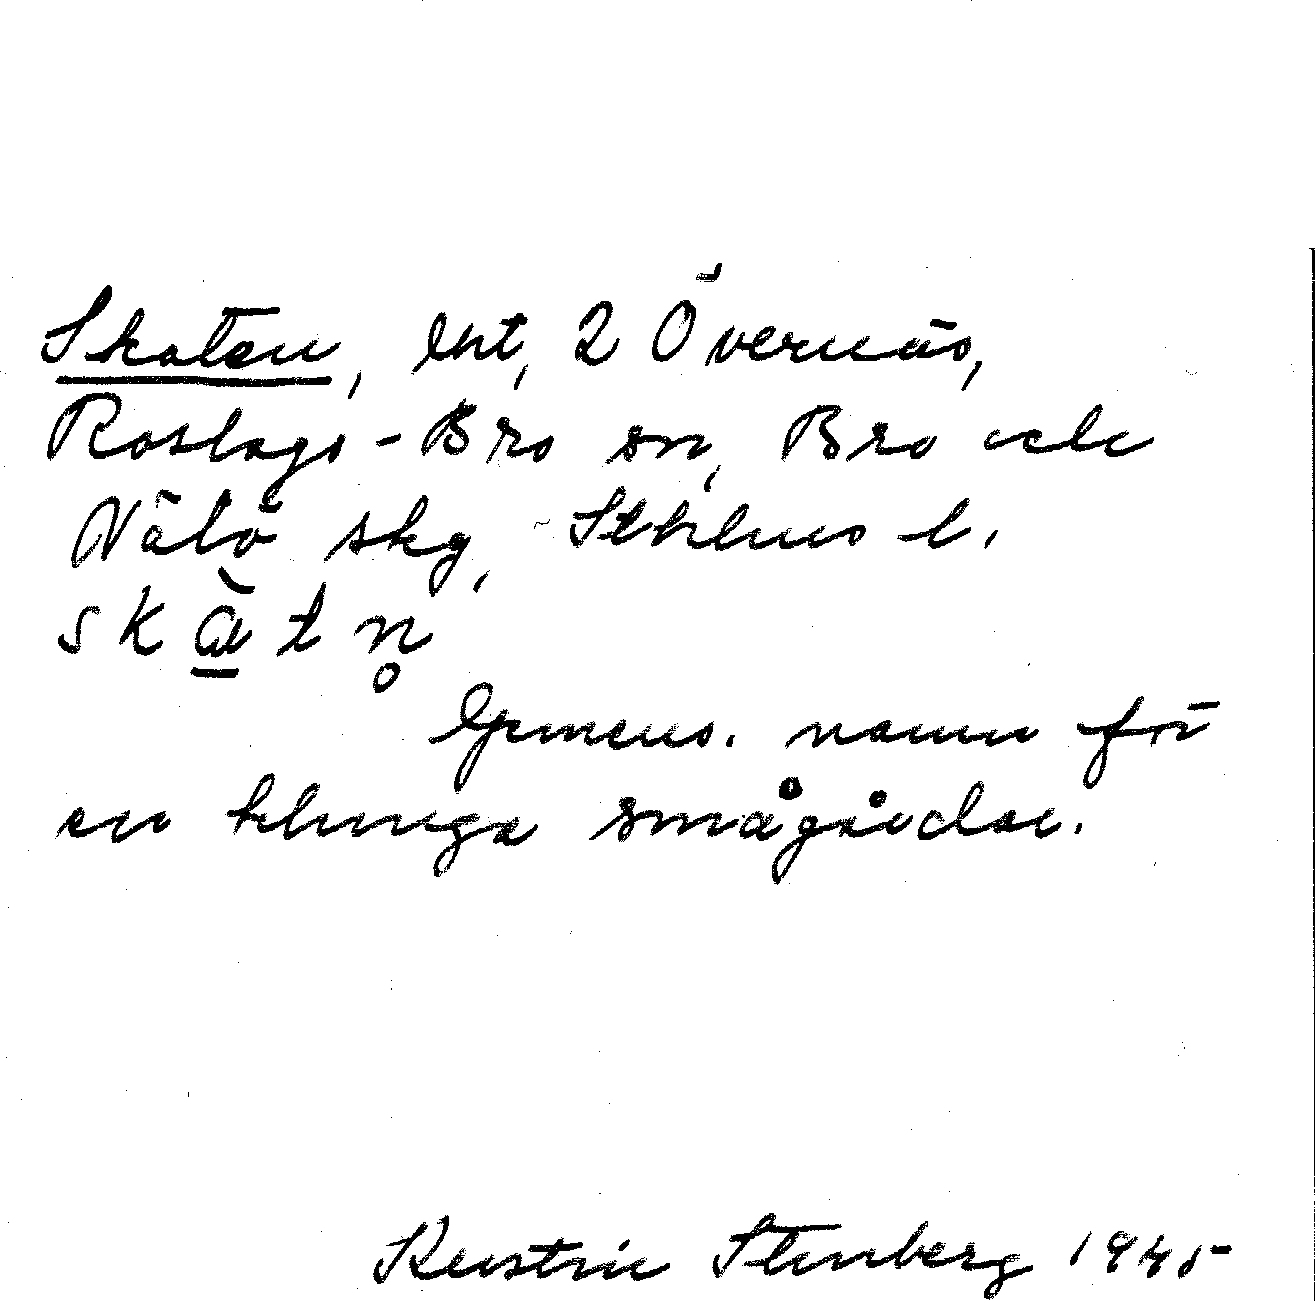 Skaten, lht, 2 Övernäs,
Roslags-Bro sn, Bro och
Vätö skg, Sthlms l.
skàtn̥
Gemens. namn för
en klunga smågårdar.
Kerstin Stenberg 1945